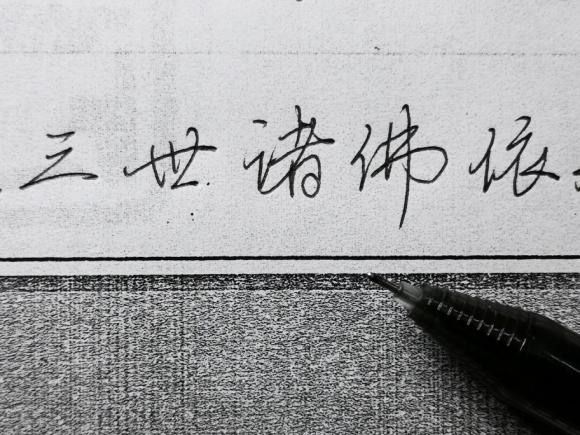 三世诸佛依